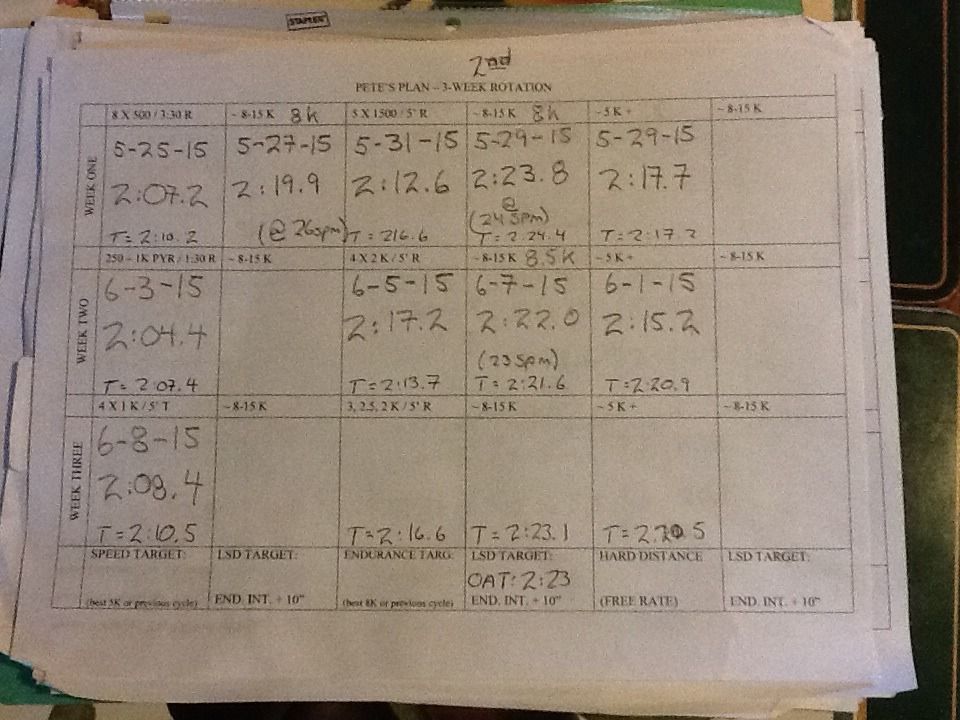 STAPLES
2nd
PETE'S PLAN - 3-WEEK ROTATION
8 X 500 / 3:30 R
~ 8-15 K 8k
5 X 1500 / 5' R
~ 8-15 K 8k
~5K +
~ 8-15 K
WEEK ONE
5-25-15
2:07.2
T= 2:10.2
5-27-15
2:19.9
(@ 26spm)
5-31-15
2:12.6
T= 216.6
5-29-15
2:23.8
@
(24 spm)
T= 2:24.4
5-29-15
2:17.7
T= 2:17.2
250 - 1K PYR / 1:30 R
~ 8-15 K
4 X 2 K / 5' R
~ 8-15 K 8.5K
~5K +
~ 8-15 K
WEEK TWO
6-3-15
2:04.4
T= 2:07.4
6-5-15
2:17.2
T= 2:13.7
6-7-15
2:22.0
(23 spm)
T= 2:21.6
6-1-15
2:15.2
T=2:20.9
4 X 1 K / 5' T
~8-15 K
3, 2.5, 2 K / 5' R
~8-15 K
~5K +
~8-15 K
WEEK THREE
6-8-15
2:08.4
T= 2:10.5
T=2:16.6
T= 2:23.1
T= 2:20.5
SPEED TARGET:
(best 5K or previous cycle)
LSD TARGET:
END. INT. + 10"
ENDURANCE TARG:
(best 8K or previous cycle)
LSD TARGET:
OAT: 2:23
END. INT. + 10"
HARD DISTANCE
(FREE RATE)
LSD TARGET:
END. INT. + 10"